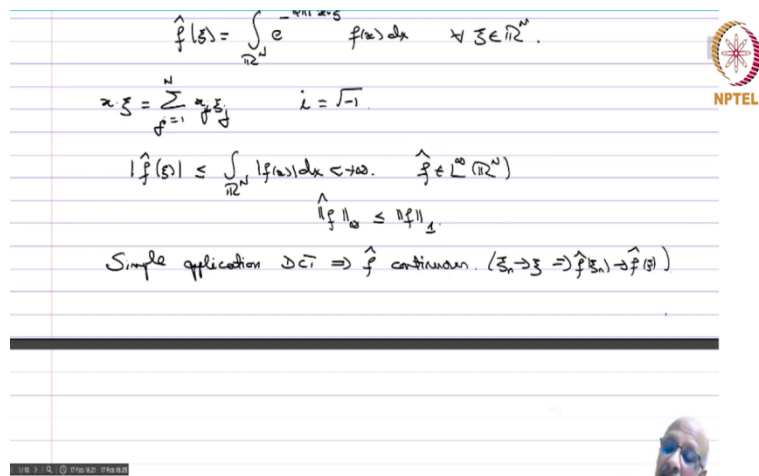 f̂(ξ) = ∫_{ℝ^N} e^{-2πi x·ξ} f(x) dx ∀ ξ ∈ ℝ^N.
NPTEL
x·ξ = Σ_{j=1}^{N} x_j ξ_j i = √-1.
|f̂(ξ)| ≤ ∫_{ℝ^N} |f(x)| dx < +∞. f̂ ∈ L^∞(ℝ^N)
‖f̂‖_∞ ≤ ‖f‖_1.
Simple application DCT ⇒ f̂ continuous. (ξ_n → ξ ⇒ f̂(ξ_n) → f̂(ξ))